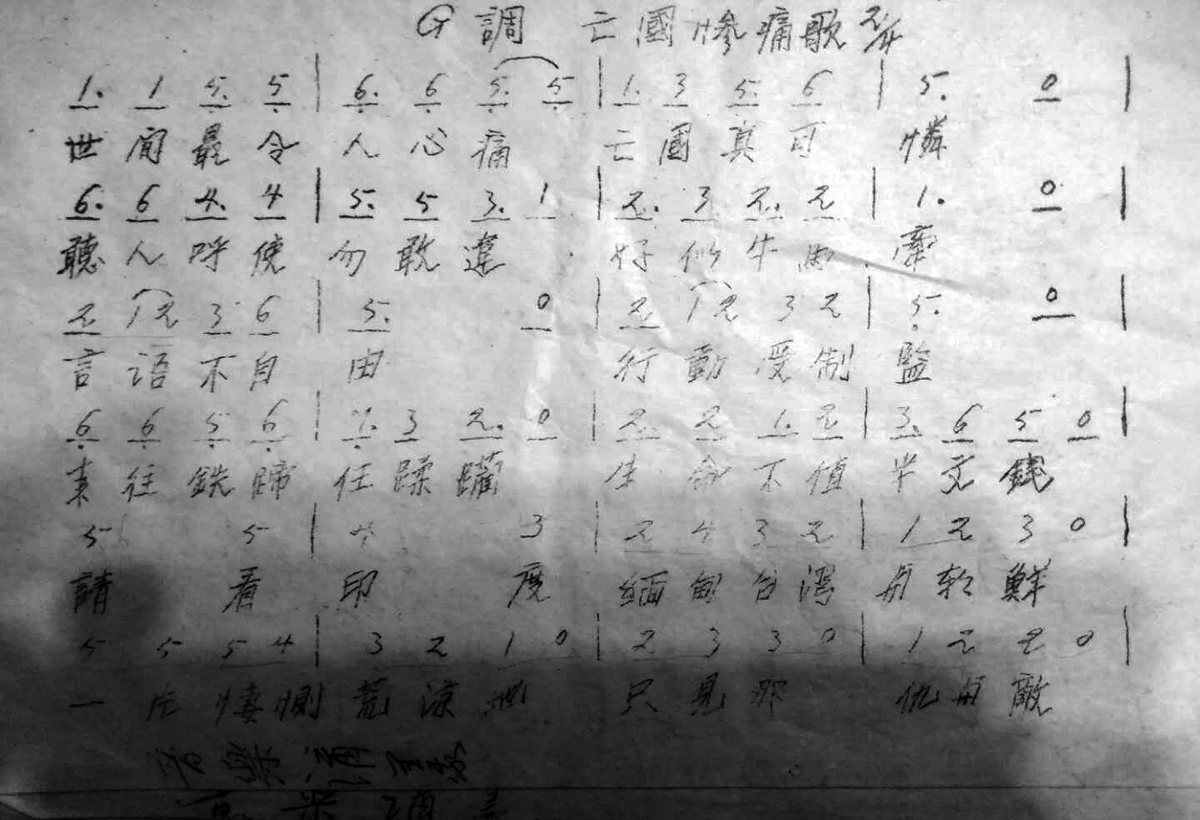 G調 亡國慘痛歌 2/4
1. 1 5. 5 | 6. 6 5. 5 | 1. 3 5. 6 | 5. 0 |
世间最令 人心痛 亡國真可 憐
6. 6 4. 4 | 5. 5 3. 1 | 2. 3 2. 2 | 1. 0 |
聽人呼使 勿敢違 好似牛馬 牽
2 12 3 6 | 5. 0 | 2 12 3 2 | 5. 0 |
言语不自 由 行動受制 監
6 6 5 6 | 1. 3 2. 0 | 2. 2 1. 2 | 3. 6 5 0 |
来往銕蹄 任蹂躪 生命不值 半文錢
5 5 | 4 3 | 2 4 3 2 | 1 2 3 0 |
請看 印度 缅甸台湾 與朝鮮
5 5 5 4 | 3 2 1 0 | 2 3 3 0 | 1 2 2 0 |
一片悽惻 荒涼地 只見那 仇與敵
音樂